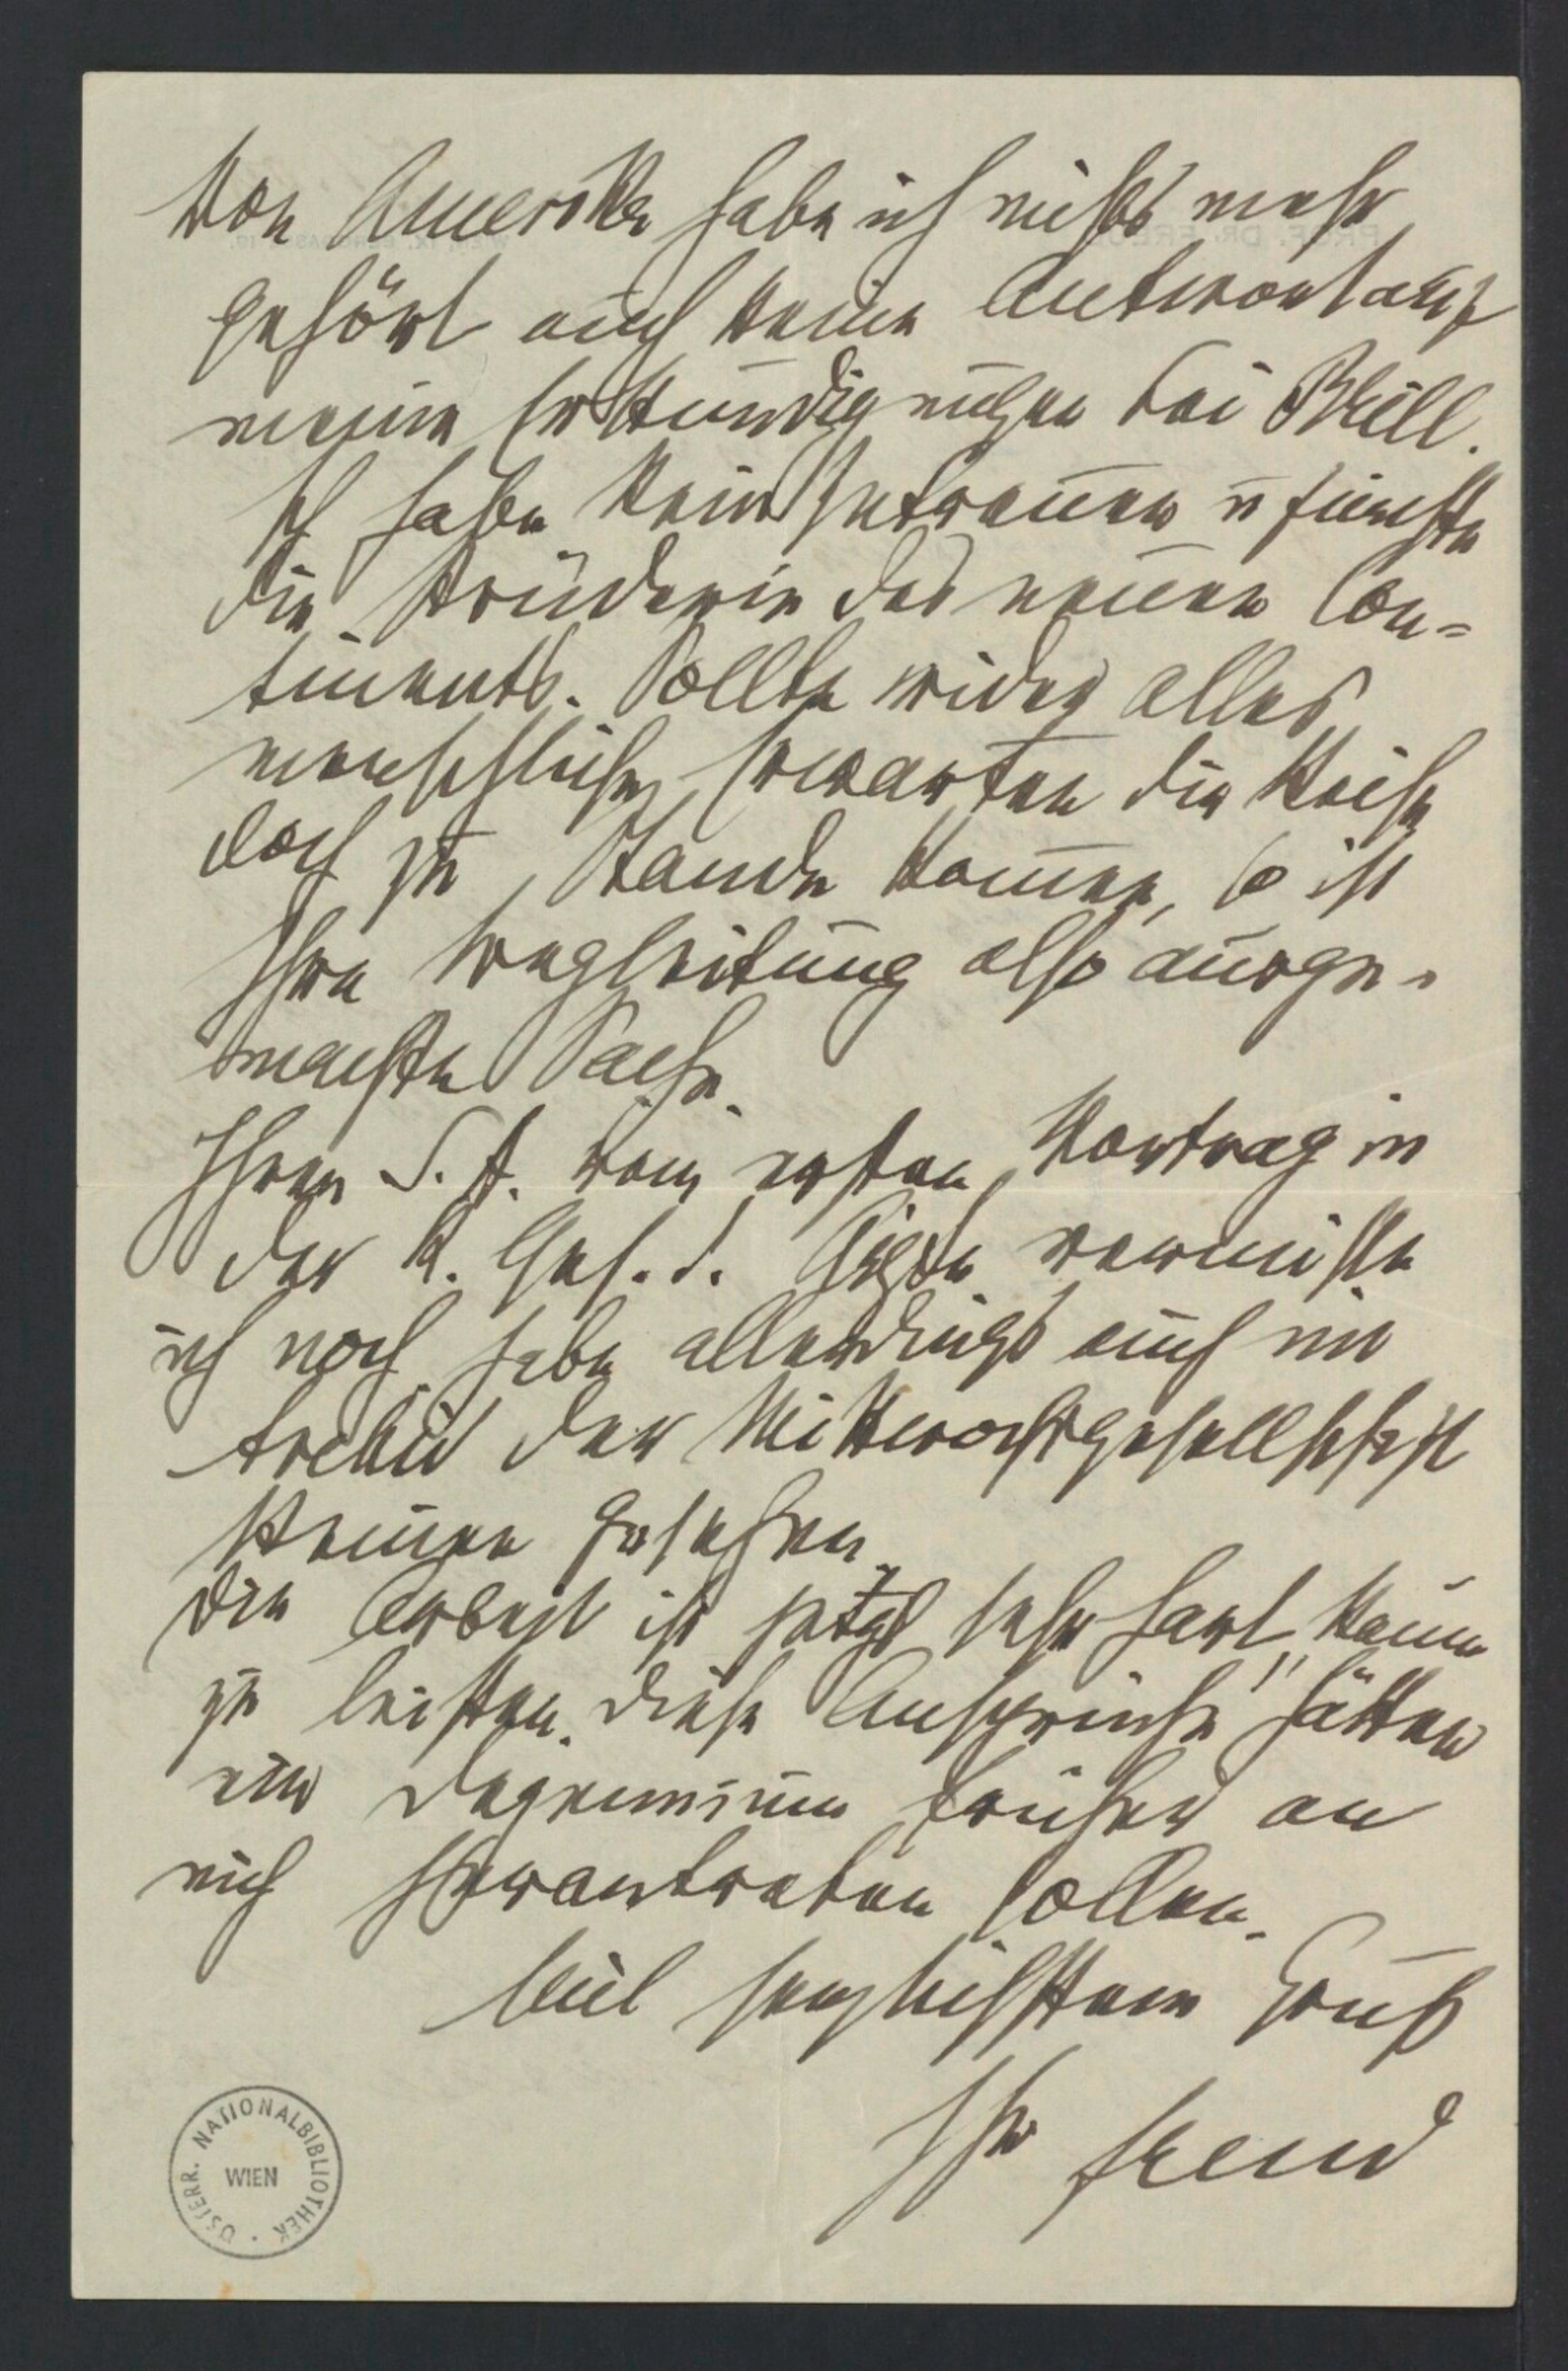 Von Amerika habe ich nichts mehr
gehört auch keine Antwort auf
meine Erkundigungen bei Brill.
Ich habe kein Zutrauen u fürchte
die Prüderie des neuen Con-
tinents. Sollte wider alles
menschliche Erwarten die Reise
doch zu Stande kommen, so ist
Ihre Begleitung also ausge-
machte Sache.
Ihren S. A. vom ersten Vortrag in
der k. Ges. d. Ärzte vermisste
ich noch, habe allerdings auch im
Archiv der Mittwochsgesellschaft
keinen gesehen.
Die Arbeit ist jetzt sehr hart, kaum
zu leisten. Diese Ansprüche hätten
ein Dezennium früher an
mich herantreten sollen.
Mit herzlichstem Gruß
Ihr Freud
ÖSTERR. NATIONALBIBLIOTHEK
WIEN